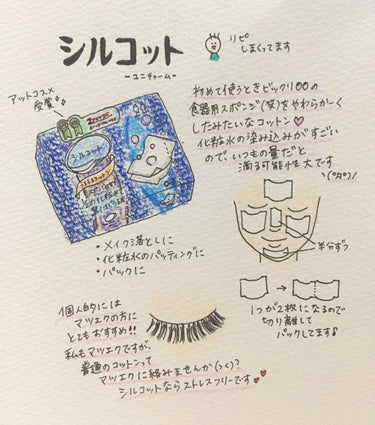 シルコット
-ユニチャーム-
リピ
しまくってます
アットコスメ
受賞
初めて使うときビックリ
食器用スポンジ(笑)をやわらかーく
したみたいなコットン♡
化粧水の染み込みがすごい
ので、いつもの量だと
滴る可能性も大です
シルコット
・メイク落としに
・化粧水のパッティングに
・パックに
半分ずつ
1つが2枚になるので
切り離して
パックしてます♪
個人的には
マツエクの方に
とてもおすすめ!!
私もマツエクですが、
普通のコットンって
マツエクに絡みませんか(つく)?
シルコットならストレスフリーです♥♥